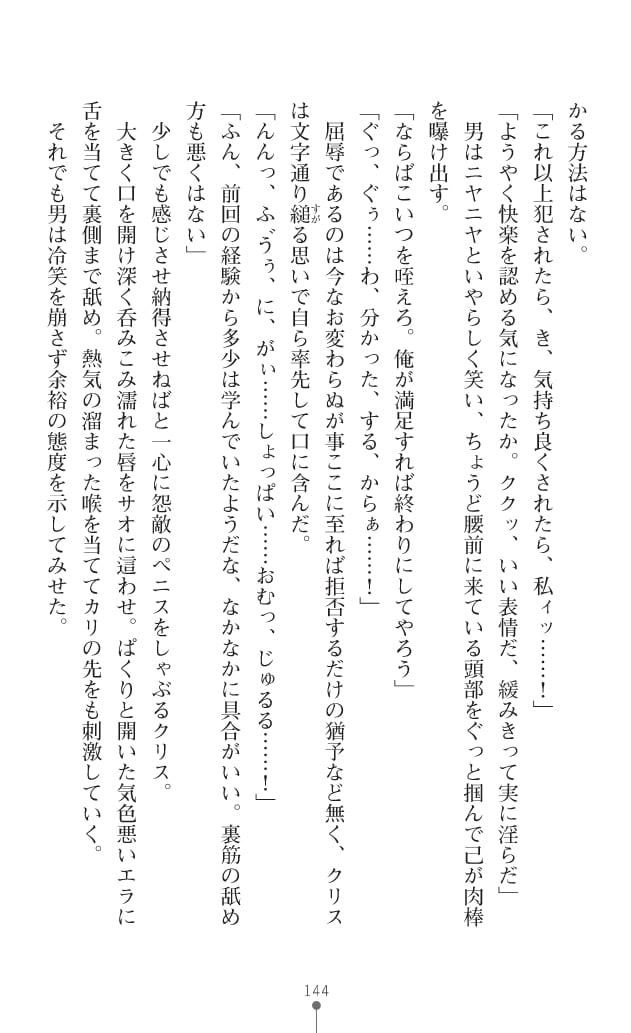 かる方法はない。
「これ以上犯されたら、き、気持ち良くされたら、私ィッ……！」
「ようやく快楽を認める気になったか。ククッ、いい表情だ、緩みきって実に淫らだ」
男はニヤニヤといやらしく笑い、ちょうど腰前に来ている頭部をぐっと掴んで己が肉棒
を曝け出す。
「ならばこいつを咥えろ。俺が満足すれば終わりにしてやろう」
「ぐっ、ぐぅ……わ、分かった、する、からぁ……！」
屈辱であるのは今なお変わらぬが事ここに至れば拒否するだけの猶予など無く、クリス
は文字通り縋すがる思いで自ら率先して口に含んだ。
「んんっ、ふ゛うぅ、に、がぃ……しょっぱい……おむっ、じゅるる……！」
「ふん、前回の経験から多少は学んでいたようだな、なかなかに具合がいい。裏筋の舐め
方も悪くはない」
少しでも感じさせ納得させねばと一心に怨敵のペニスをしゃぶるクリス。
大きく口を開け深く呑みこみ濡れた唇をサオに這わせ。ぱくりと開いた気色悪いエラに
舌を当てて裏側まで舐め。熱気の溜まった喉を当ててカリの先をも刺激していく。
それでも男は冷笑を崩さず余裕の態度を示してみせた。
144